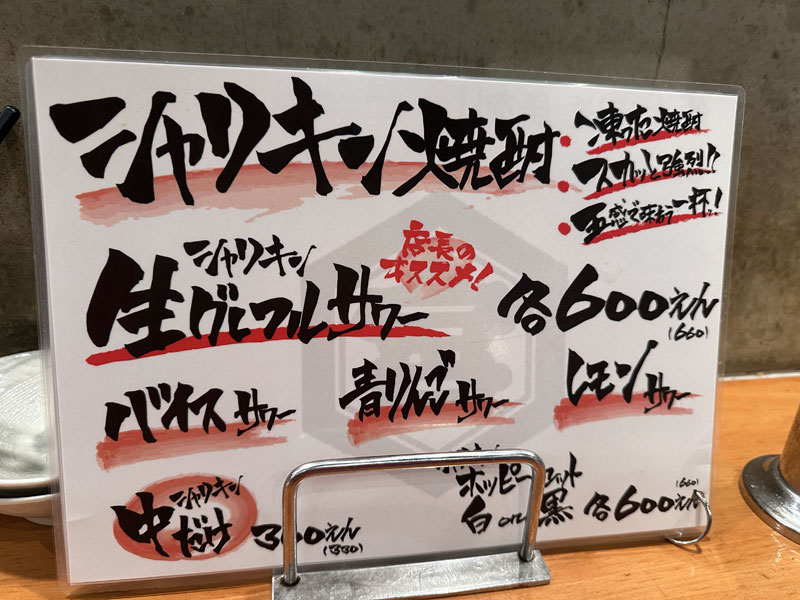 シャリキン焼酎
・凍った焼酎
・スカッと強烈!!
・五感で味わう一杯!
店長の
オススメ!
シャリキン
生グレフルサワー
各600えん
(660)
バイスサワー
青りんごサワー
レモンサワー
シャリキン
中だけ 300えん
(330)
ホッピーセット
白or黒 各600えん
(660)